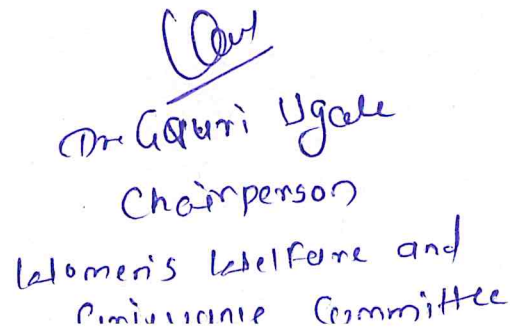 Dr. Gauri Ugale
Chairperson
Women's Welfare and
Committee